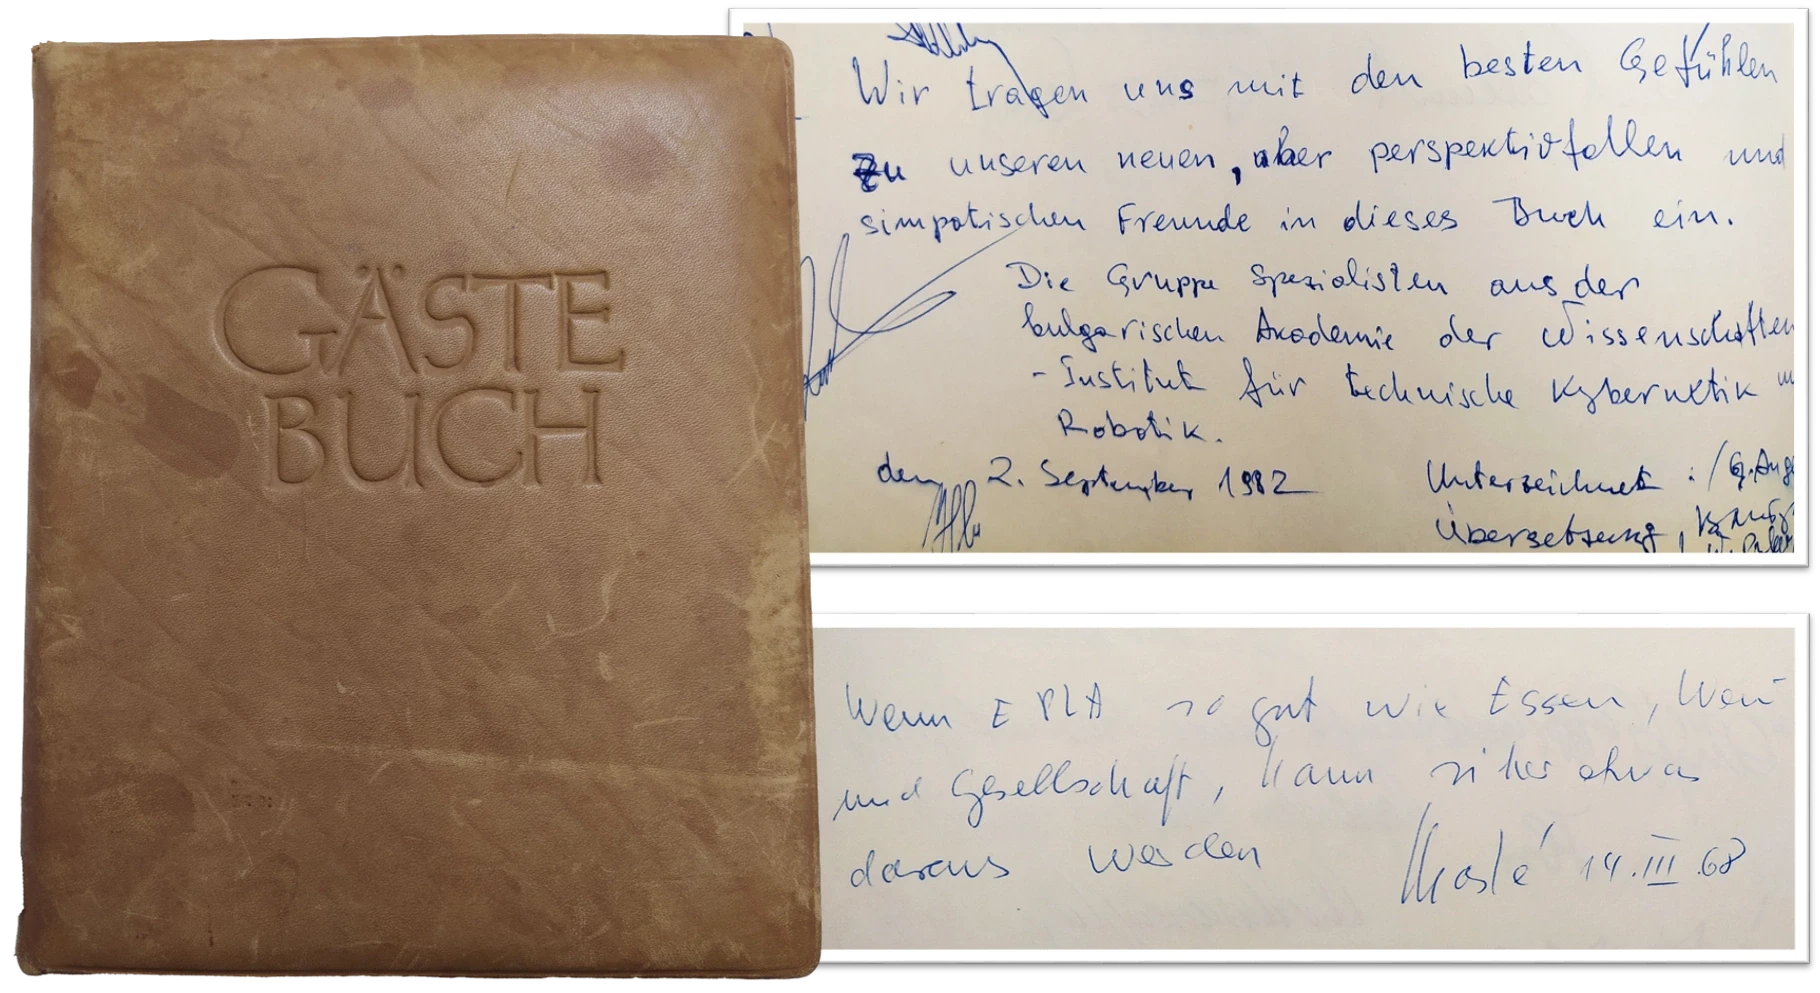 GÄSTE
BUCH
Wir tragen uns mit den besten Gefühlen
zu unseren neuen, aber perspektivfollen und
simpatischen Freunde in dieses Buch ein.
Die Gruppe Spezialisten aus der
bulgarischen Akademie der Wissenschaften
- Institut für technische Kybernetik
Robotik.
den 2. September 1982
Unterzeichnet : / G. Ang
Übersetzung
Wenn EPLA so gut wie Essen, Wein
und Gesellschaft, kann sicher etwas
daraus werden
14.III.68